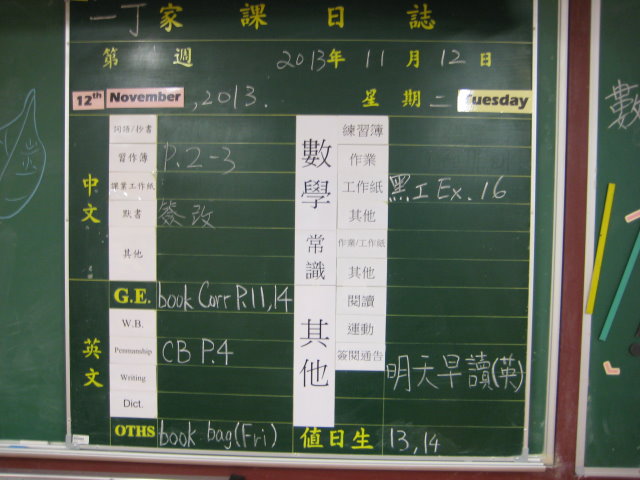 一丁家課日誌
第 週 2013年 11月 12日
12th November, 2013. 星期二 Tuesday
中文
詞語/抄書
習作簿 P.2-3
課業工作紙
默書 簽改
其他
英文
G.E. book Corr P.11,14
W.B.
Penmanship CB P.4
Writing
Dict.
OTHS book bag(Fri)
數學
練習簿
作業
工作紙 黑工Ex.16
其他
常識
作業/工作紙
其他
其他
閱讀
運動
簽閱通告
明天早讀(英)
值日生 13,14
數